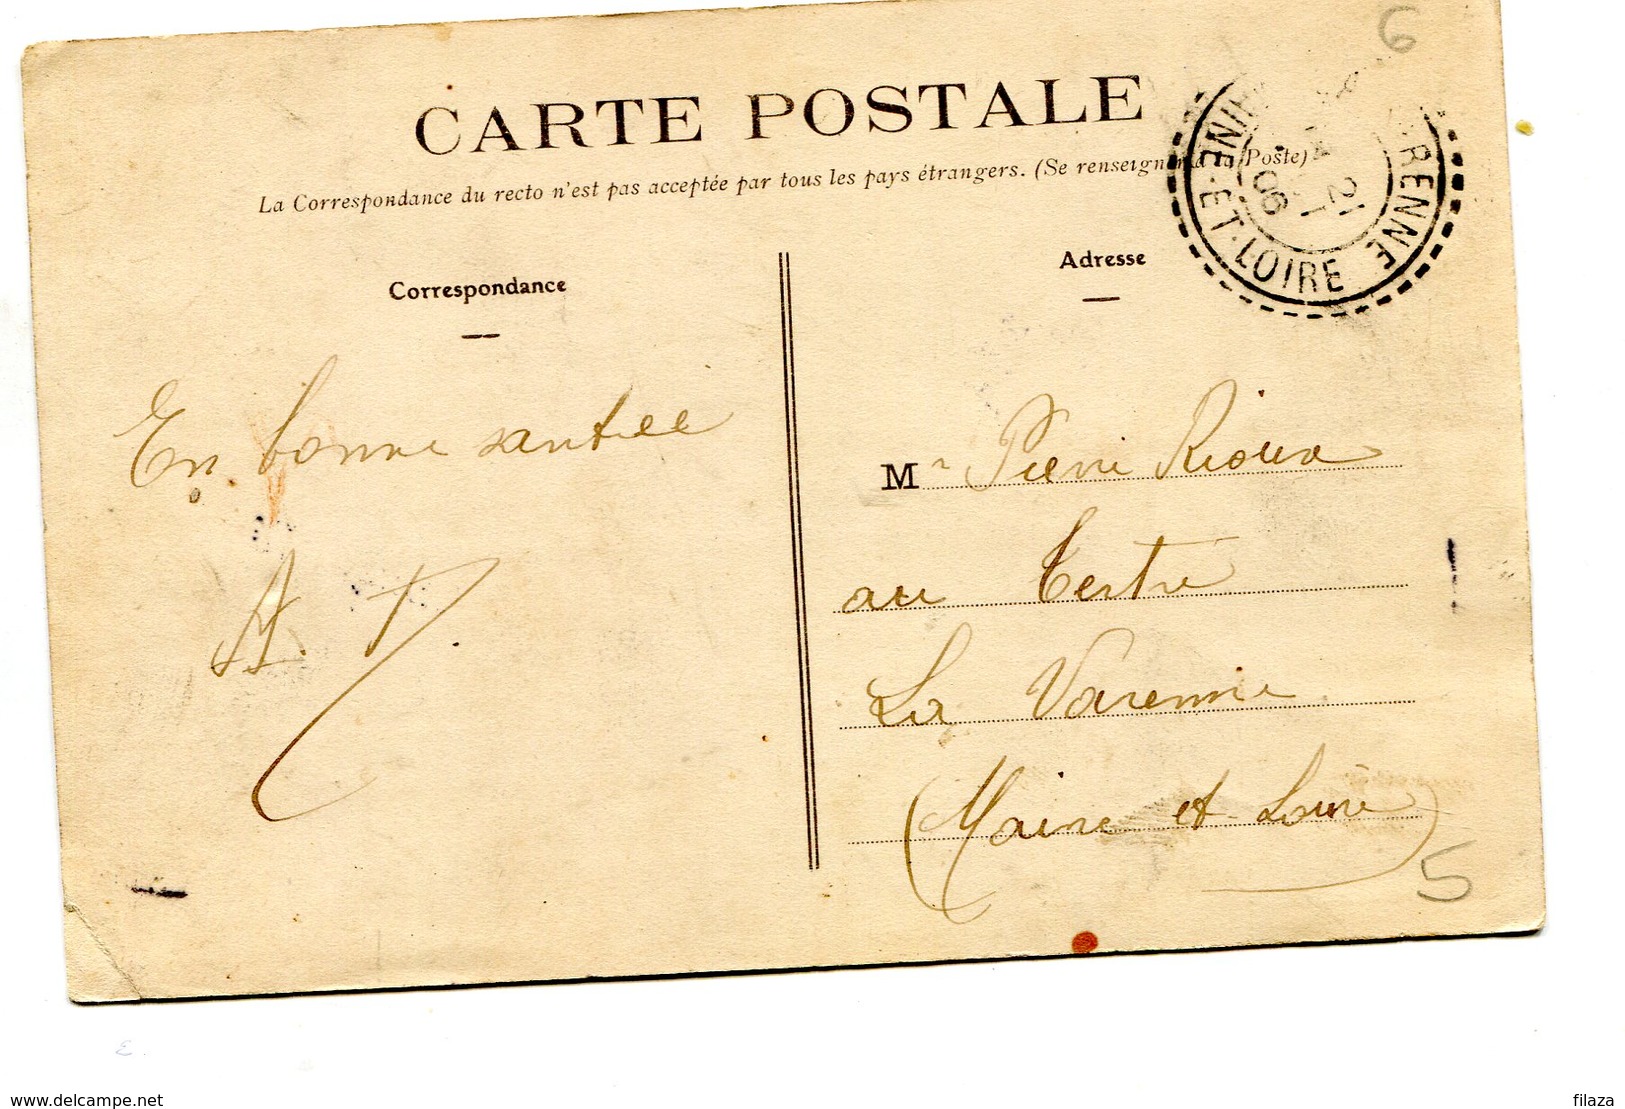 6
CARTE POSTALE
La Correspondance du recto n'est pas acceptée par tous les pays étrangers. (Se renseigner à la Poste)
RENNE
21
06
NE-ET-LOIRE
Correspondance
Adresse
En bonne santée
A. T.
Mr Pierre Rioux
au Tertre
La Varenne
(Maine et Loire)
5
www.delcampe.net
filaza